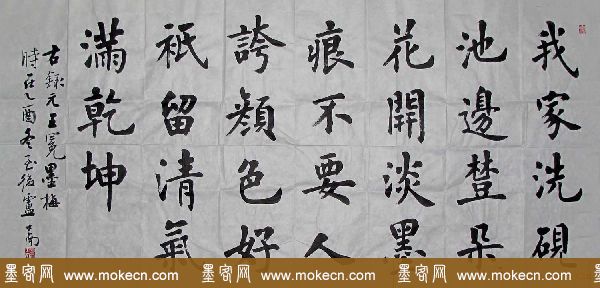 我家洗硯
池邊朵
花開淡墨
痕不要人
誇顏色好
祇留清氣
滿乾坤
右錄元王冕墨梅
時在乙酉冬至後盧南
墨客网 www.mokecn.com 墨客网 www.mokecn.com 墨客网 www.mokecn.com